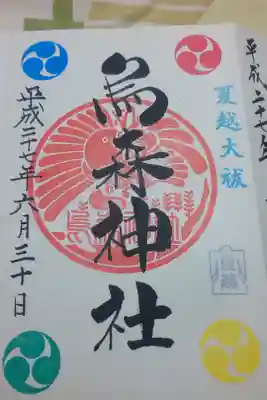 夏越大祓
烏森神社
平成二十七年六月三十日
平成二十七年